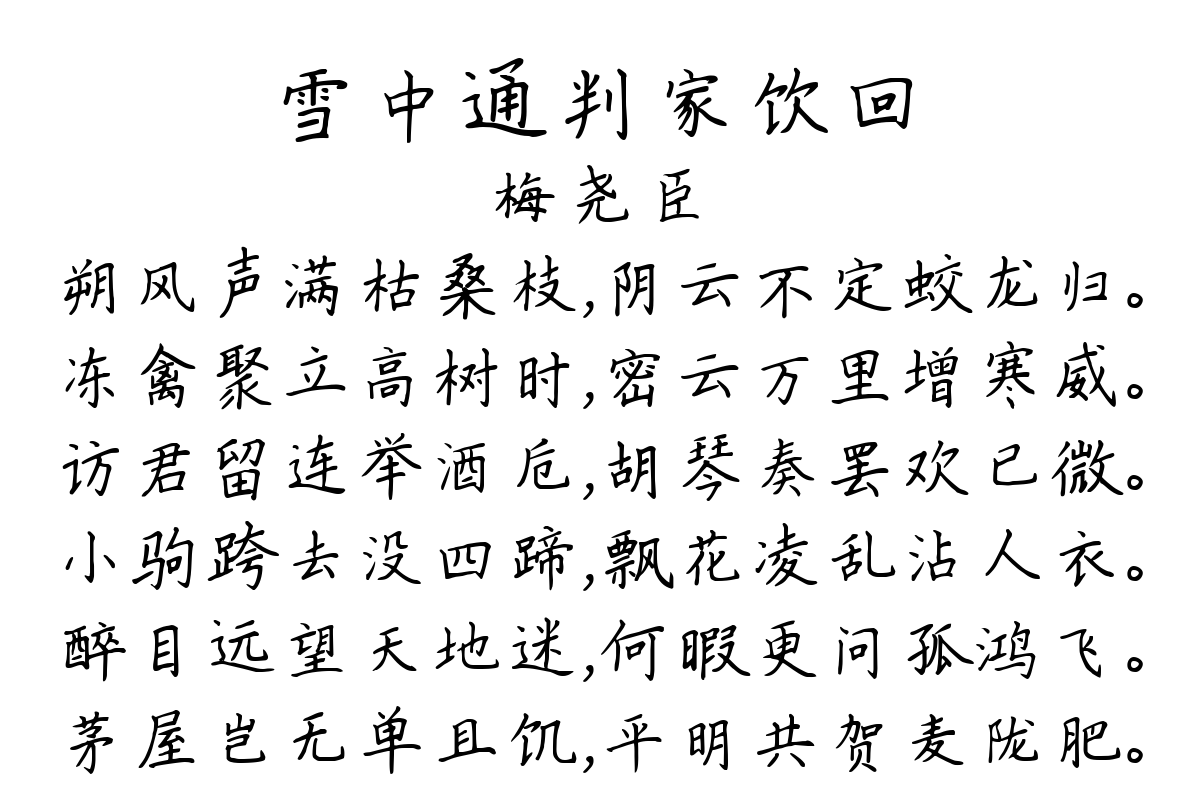 雪中通判家饮回
梅尧臣
朔风声满枯桑枝,阴云不定蛟龙归。
冻禽聚立高树时,密云万里增寒威。
访君留连举酒卮,胡琴奏罢欢已微。
小驹跨去没四蹄,飘花凌乱沾人衣。
醉目远望天地迷,何暇更问孤鸿飞。
茅屋岂无单且饥,平明共贺麦陇肥。